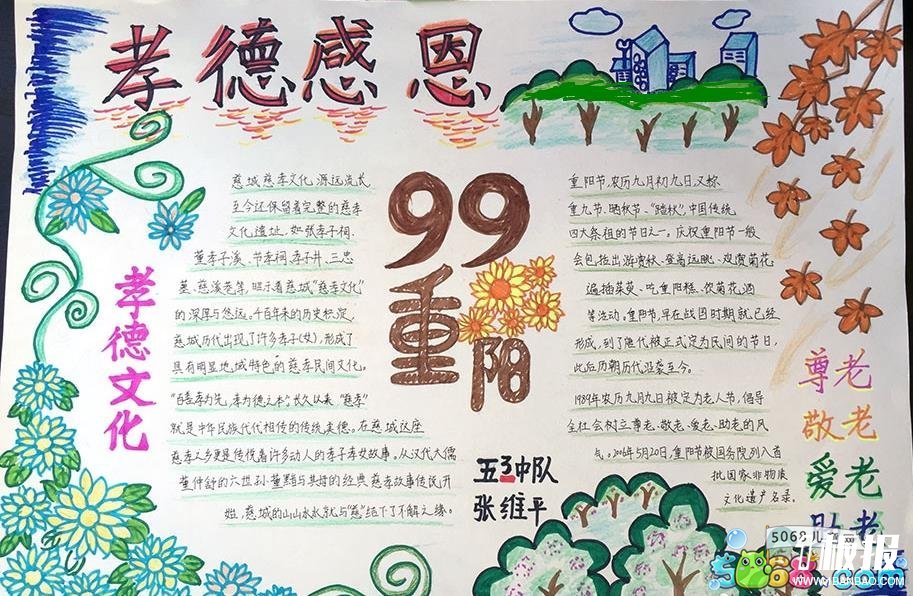 孝德感恩
孝德文化
慈城慈孝文化源远流长
至今还保留着完整的慈孝
文化遗址,如张孝子祠、
董孝子溪、节孝祠、孝子井、三忠
墓、慈溪巷等,昭示着慈城“慈孝文化”
的深厚与悠远。千百年来的历史积淀,
慈城历代出现了许多孝子(女),形成了
具有明显地域特色的慈孝民间文化。
“百善孝为先,孝为德之本”,长久以来,“慈孝”
就是中华民族代代相传的传统美德。在慈城这座
慈孝之乡更是传悦着许多动人的孝子孝女故事。从汉代大儒
董仲舒的六世孙董黯与其母的经典慈孝故事传民开
始,慈城的山山水水就与“慈”结下了不解之缘。
99
重阳
五3中队
张维平
重阳节,农历九月初九日,又称
重九节、晒秋节、“踏秋”,中国传统
四大祭祖的节日之一。庆祝重阳节一般
会包括出游赏秋、登高远眺、观赏菊花
遍插茱萸、吃重阳糕、饮菊花酒
等活动。重阳节,早在战国时期就已经
形成,到了唐代被正式定为民间的节日,
此后历朝历代沿袭至今。
1989年农历九月九日被定为老人节,倡导
全社会树立尊老、敬老、爱老、助老的风
气。2006年5月20日,重阳节被国务院列入首
批国家非物质
文化遗产名录。
尊老
敬老
爱老
助老
5068儿童网
板报
WWW.1BANBAO.COM